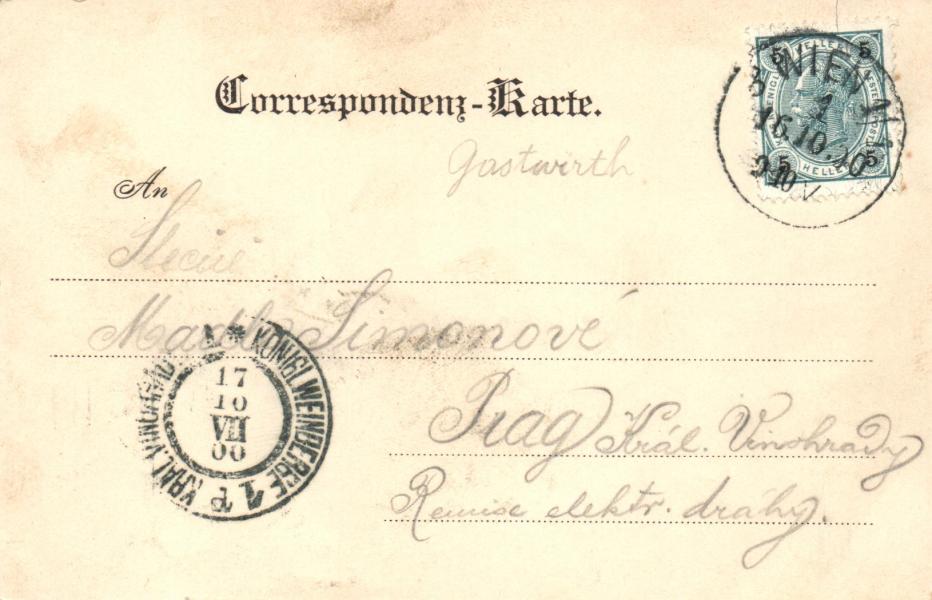 Correspondenz-Karte.
Gastwirth
An
Slečně
Simonové
Prag Král. Vinohrady
Remise elektr. dráhy.
5 HELLER 5
5 HELLER 5
WIEN
1
16.10.00
9 10 V
KÖNIGL. WEINBERGE 1
KRÁL. VINOHRADY
17
10
VII
00